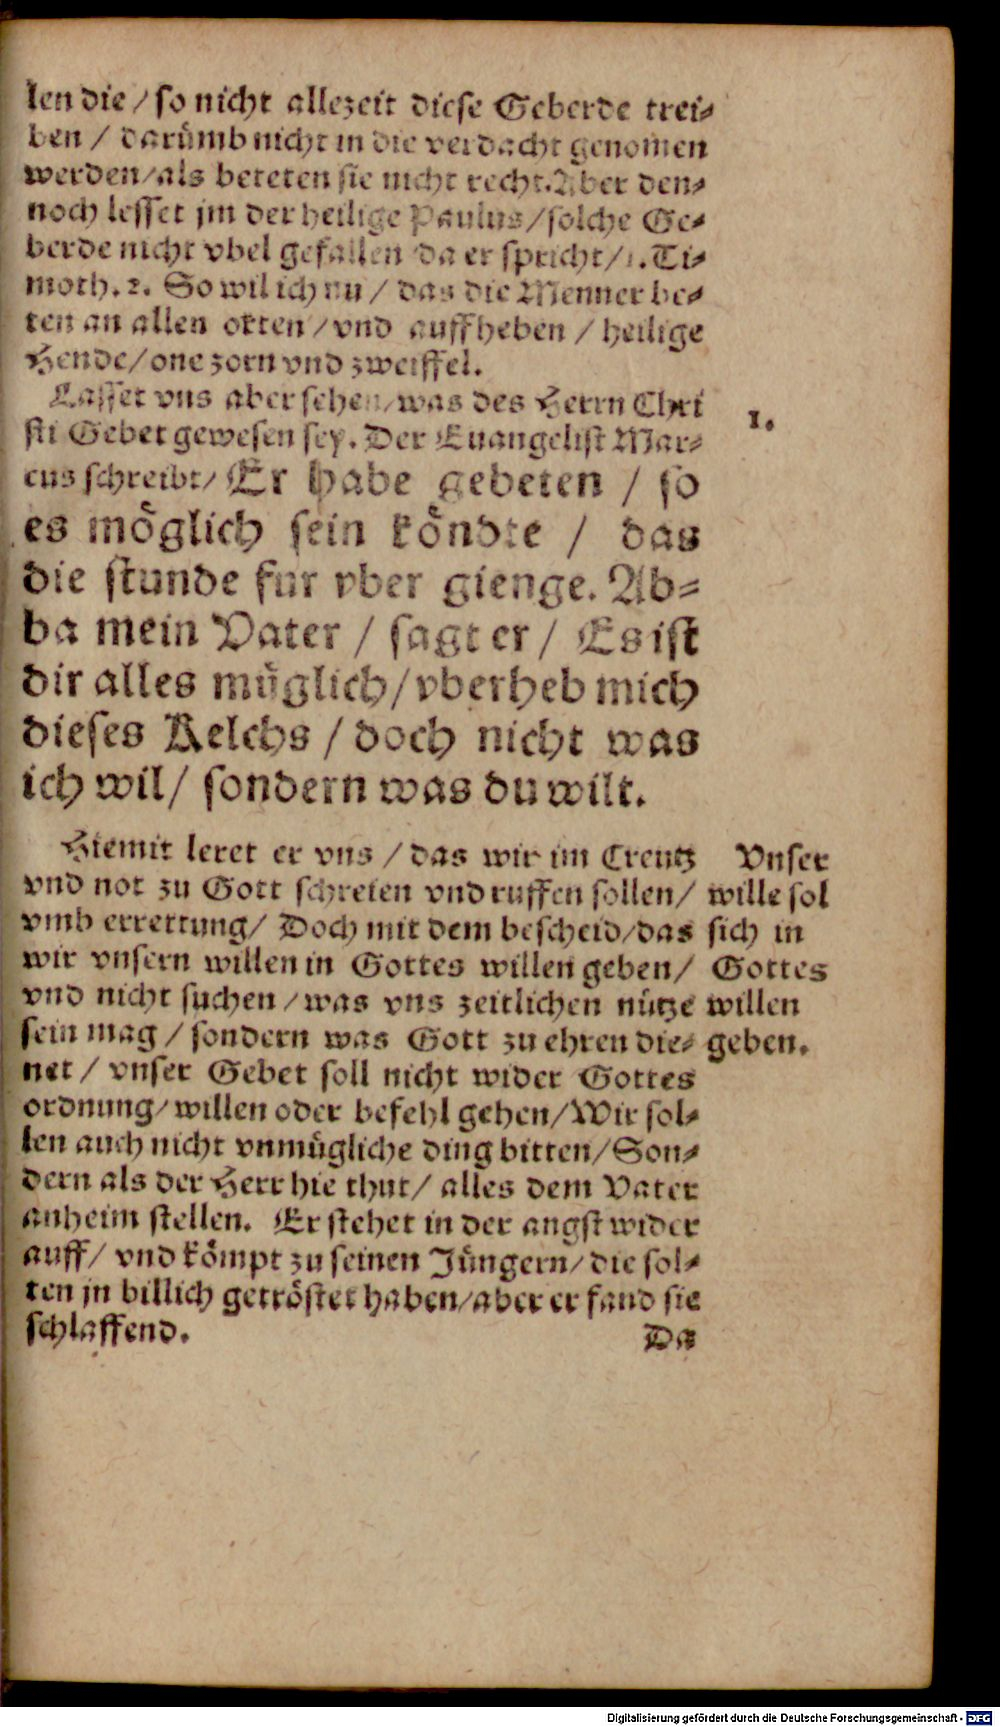 len die / so nicht allezeit diese Geberde trei-
ben / darümb nicht in die verdacht genomen
werden / als beteten sie nicht recht. Aber den-
noch lesset jm der heilige Paulus / solche Ge-
berde nicht vbel gefallen da er spricht / 1. Ti-
moth. 2. So wil ich nu / das die Menner be-
ten an allen orten / vnd auffheben / heilige
Hende / one zorn vnd zweiffel.
Lasset vns aber sehen / was des Herrn Chri
sti Gebet gewesen sey. Der Euangelist Mar-
cus schreibt / Er habe gebeten / so
es möglich sein köndte / das
die stunde fur vber gienge. Ab-
ba mein Vater / sagt er / Es ist
dir alles müglich / vberheb mich
dieses Kelchs / doch nicht was
ich wil / sondern was du wilt.
1.
Hiemit leret er vns / das wir im Creutz
vnd not zu Gott schreien vnd ruffen sollen /
vmb errettung / Doch mit dem bescheid / das
wir vnsern willen in Gottes willen geben /
vnd nicht suchen / was vns zeitlichen nütze
sein mag / sondern was Gott zu ehren die-
net / vnser Gebet soll nicht wider Gottes
ordnung / willen oder befehl gehen / Wir sol-
len auch nicht vnmügliche ding bitten / Son-
dern als der Herr hie thut / alles dem Vater
anheim stellen. Er stehet in der angst wider
auff / vnd kömpt zu seinen Jüngern / die sol-
ten jn billich getröstet haben / aber er fand sie
schlaffend.
Da
Vnser
wille sol
sich in
Gottes
willen
geben.
Digitalisierung gefördert durch die Deutsche Forschungsgemeinschaft - DFG